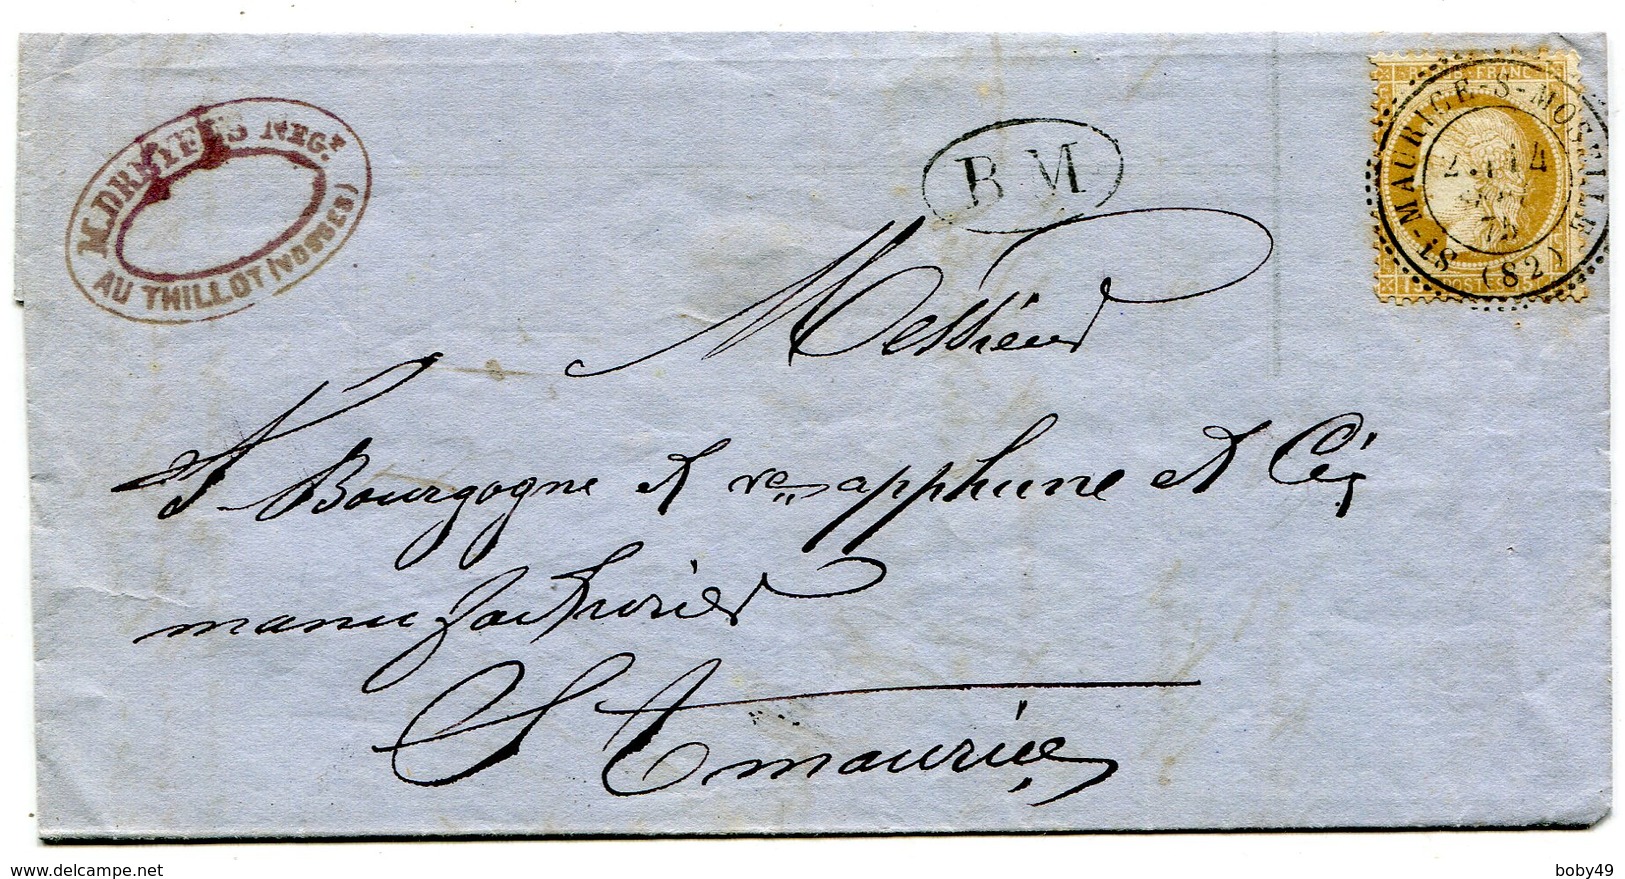 M. DREYFUS NÉGT
AU THILLOT (VOSGES)
B M
REPUB. FRANC
15 POSTES 15
ST-MAURICE-S-MOSELLE
(82)
75
Messieurs
Bourgogne et
et Cie
manufacturiers
St maurice
delcampe.net
boby49